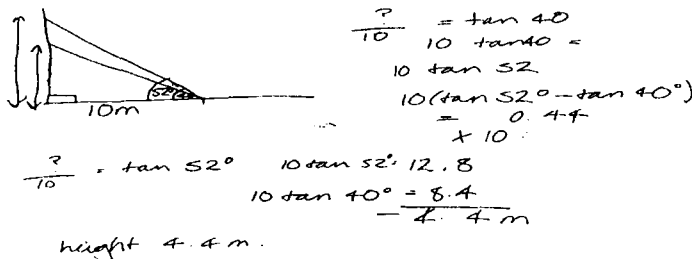 ? / 10 = tan 40
10 tan 40 =
10 tan 52
10(tan 52° - tan 40°)
= 0.44
× 10
52°
10m
? / 10 = tan 52° 10 tan 52° = 12.8
10 tan 40° = 8.4
- 4.4 m
height 4.4 m.